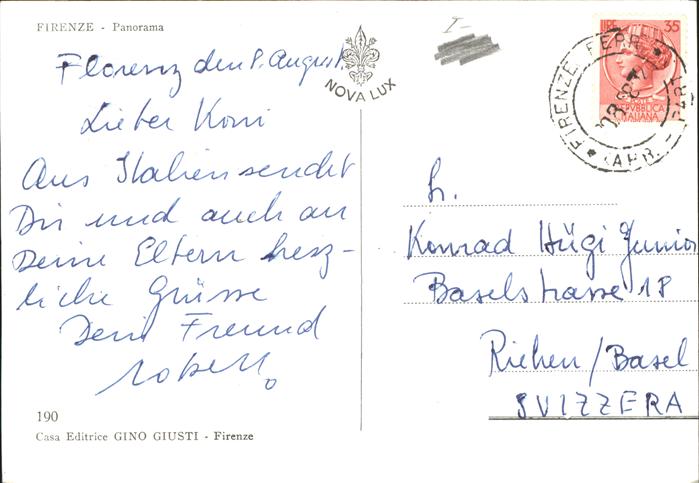 FIRENZE - Panorama
Florenz den 8. August
Lieber Koni
Aus Italien sendet
Dir und auch an
Deine Eltern herz-
liche Grüsse
Dein Freund
Robert.
190
Casa Editrice GINO GIUSTI - Firenze
NOVA LUX
LIRE 35
POSTE
REPUBBLICA
ITALIANA
FIRENZE FERR.
h.
Konrad Hügi Junior
Baselstrasse 18
Riehen/Basel
SVIZZERA